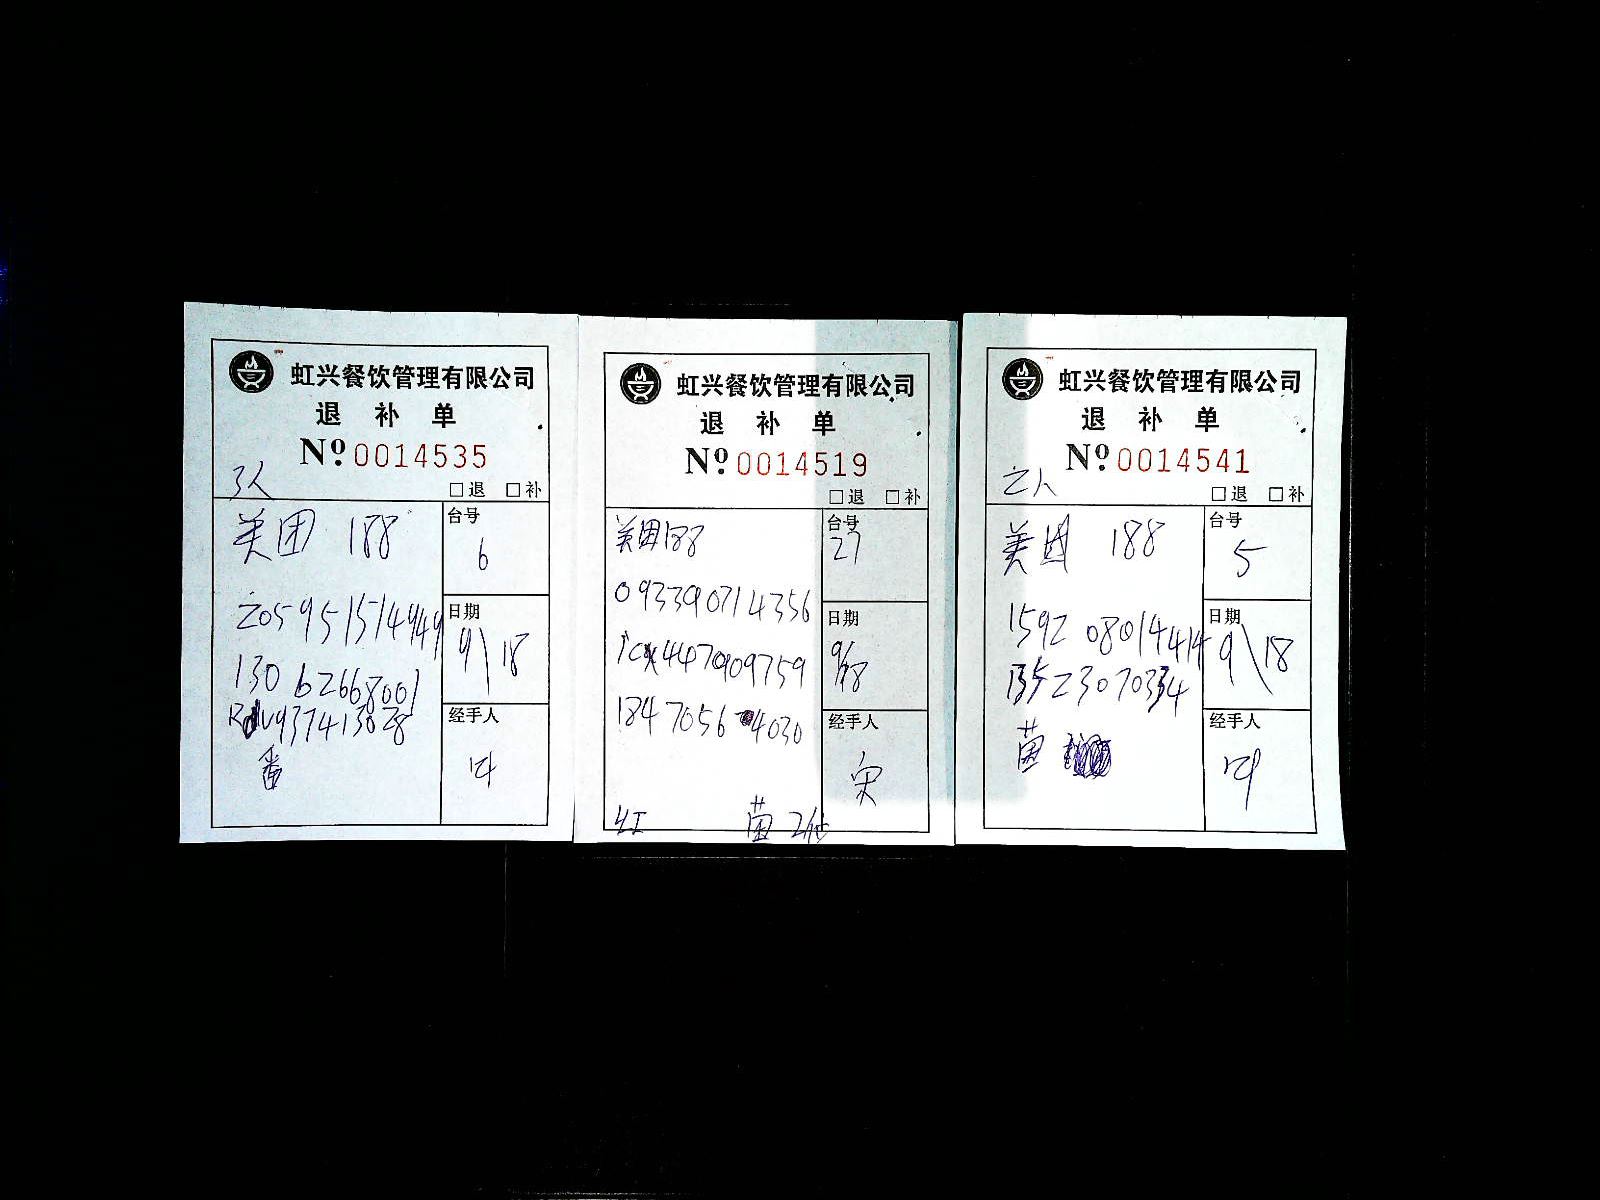 虹兴餐饮管理有限公司
退 补 单
Nº 0014535
3人
□退 □补
美团 188
205951514949
130 62668001
Rdv937413028
番
台号
6
日期
9\18
经手人
虹兴餐饮管理有限公司
退 补 单
Nº 0014519
□退 □补
美团188
093390714356
1847056 4030
红 菌 2份
台号
27
日期
9/18
经手人
宋
虹兴餐饮管理有限公司
退 补 单
Nº 0014541
2人
□退 □补
美团 188
1592 08014414
菌
台号
5
日期
9\18
经手人